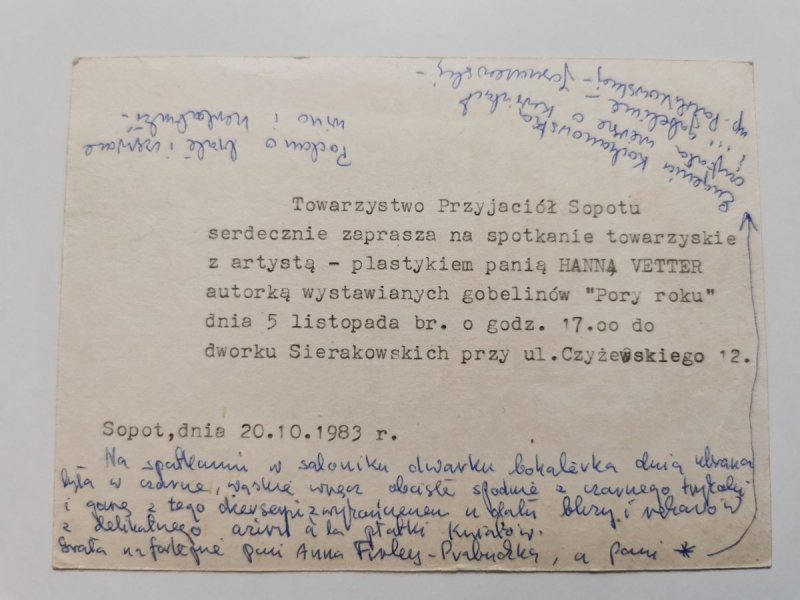 Towarzystwo Przyjaciół Sopotu
serdecznie zaprasza na spotkanie towarzyskie
z artystą - plastykiem panią HANNĄ VETTER
autorką wystawianych gobelinów "Pory roku"
dnia 5 listopada br. o godz. 17.oo do
dworku Sierakowskich przy ul.Czyżewskiego 12.
Sopot,dnia 20.10.1983 r.
Na spotkaniu w saloniku dworku ubrana
była w czarne, wąskie wręcz obcisłe spodnie z czarnego
i górę z tego i rękawów
z delikatnego à la płatki kwiatów.
Grała na fortepianie pani Anna, a pani *
Eugenia Kochanowska
czytała wiersze o kwiatach
i gobelinie -
np. Pawlikowskiej - Jasnorzewskiej -
Podano białe i czerwone
wino i